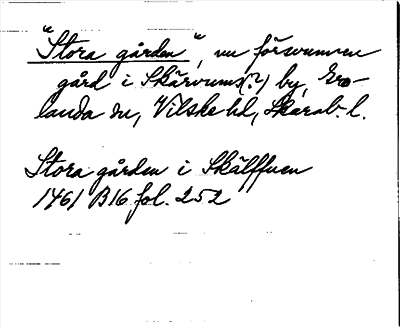 "Stora gården", nu försvunnen
gård i Skärvums(?) by, Gro-
landa sn, Vilske hd, Skarab. l.
Stora gården i Skälffuen
1461 B16 fol. 252